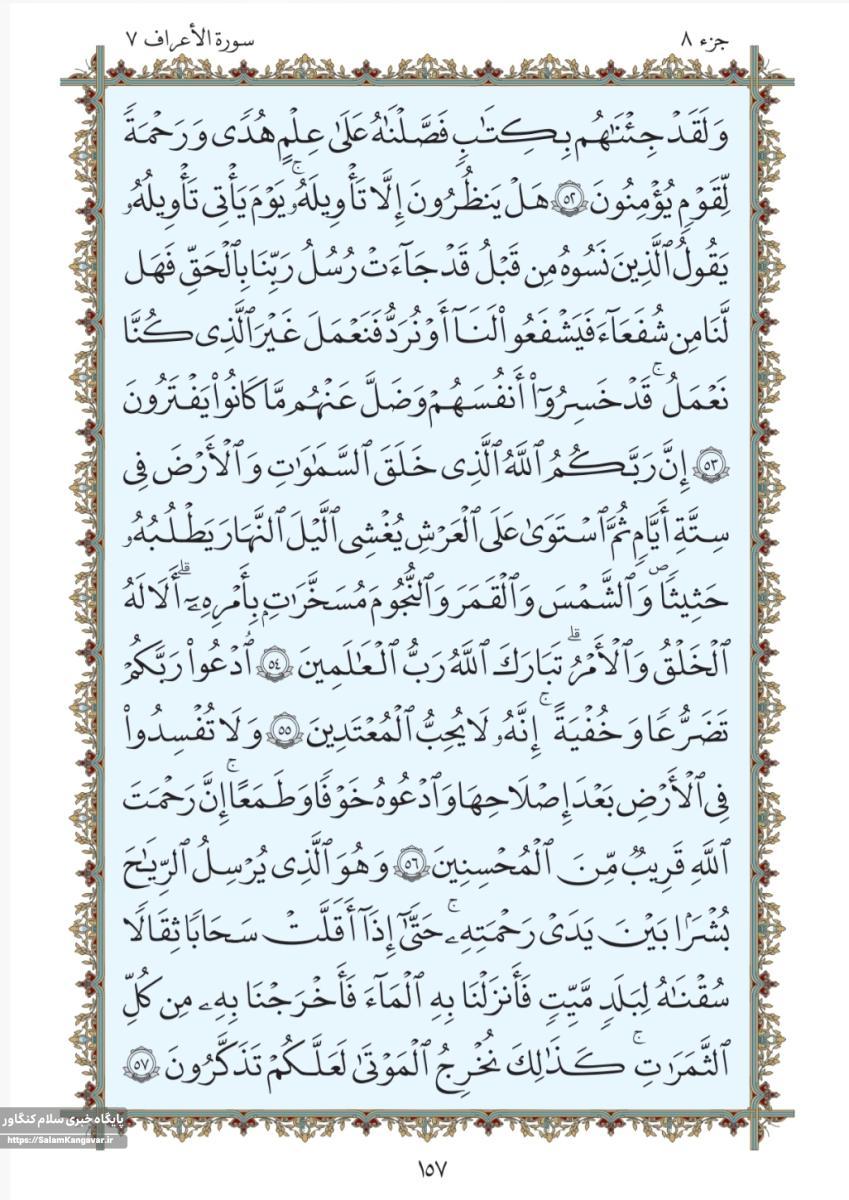 جزء ٨
سورة الأعراف ٧
وَلَقَدْ جِئْنَٰهُم بِكِتَٰبٍ فَصَّلْنَٰهُ عَلَىٰ عِلْمٍ هُدًى وَرَحْمَةً
لِّقَوْمٍ يُؤْمِنُونَ ٥٢ هَلْ يَنظُرُونَ إِلَّا تَأْوِيلَهُۥ ۚ يَوْمَ يَأْتِى تَأْوِيلُهُۥ
يَقُولُ ٱلَّذِينَ نَسُوهُ مِن قَبْلُ قَدْ جَآءَتْ رُسُلُ رَبِّنَا بِٱلْحَقِّ فَهَل
لَّنَا مِن شُفَعَآءَ فَيَشْفَعُوا۟ لَنَآ أَوْ نُرَدُّ فَنَعْمَلَ غَيْرَ ٱلَّذِى كُنَّا
نَعْمَلُ ۚ قَدْ خَسِرُوٓا۟ أَنفُسَهُمْ وَضَلَّ عَنْهُم مَّا كَانُوا۟ يَفْتَرُونَ
٥٣ إِنَّ رَبَّكُمُ ٱللَّهُ ٱلَّذِى خَلَقَ ٱلسَّمَٰوَٰتِ وَٱلْأَرْضَ فِى
سِتَّةِ أَيَّامٍ ثُمَّ ٱسْتَوَىٰ عَلَى ٱلْعَرْشِ يُغْشِى ٱلَّيْلَ ٱلنَّهَارَ يَطْلُبُهُۥ
حَثِيثًا ۖ وَٱلشَّمْسَ وَٱلْقَمَرَ وَٱلنُّجُومَ مُسَخَّرَٰتٍۭ بِأَمْرِهِۦٓ ۗ أَلَا لَهُ
ٱلْخَلْقُ وَٱلْأَمْرُ ۗ تَبَارَكَ ٱللَّهُ رَبُّ ٱلْعَٰلَمِينَ ٥٤ ٱدْعُوا۟ رَبَّكُمْ
تَضَرُّعًا وَخُفْيَةً ۚ إِنَّهُۥ لَا يُحِبُّ ٱلْمُعْتَدِينَ ٥٥ وَلَا تُفْسِدُوا۟
فِى ٱلْأَرْضِ بَعْدَ إِصْلَٰحِهَا وَٱدْعُوهُ خَوْفًا وَطَمَعًا ۚ إِنَّ رَحْمَتَ
ٱللَّهِ قَرِيبٌ مِّنَ ٱلْمُحْسِنِينَ ٥٦ وَهُوَ ٱلَّذِى يُرْسِلُ ٱلرِّيَٰحَ
بُشْرًۢا بَيْنَ يَدَىْ رَحْمَتِهِۦ ۖ حَتَّىٰٓ إِذَآ أَقَلَّتْ سَحَابًا ثِقَالًا
سُقْنَٰهُ لِبَلَدٍ مَّيِّتٍ فَأَنزَلْنَا بِهِ ٱلْمَآءَ فَأَخْرَجْنَا بِهِۦ مِن كُلِّ
ٱلثَّمَرَٰتِ ۚ كَذَٰلِكَ نُخْرِجُ ٱلْمَوْتَىٰ لَعَلَّكُمْ تَذَكَّرُونَ ٥٧
پایگاه خبری سلام کنگاور
https://SalamKangavar.ir
١٥٧